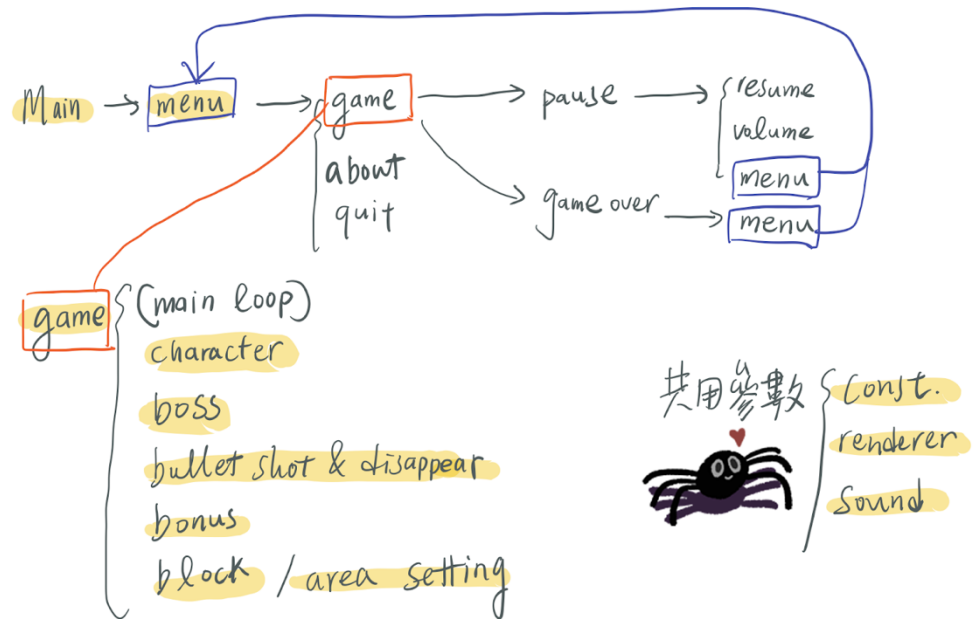 Main → menu → game → pause → resume
about
quit
volume
menu
game over → menu
game
(main loop)
character
boss
bullet shot & disappear
bonus
block / area setting
共用參數
const.
renderer
sound